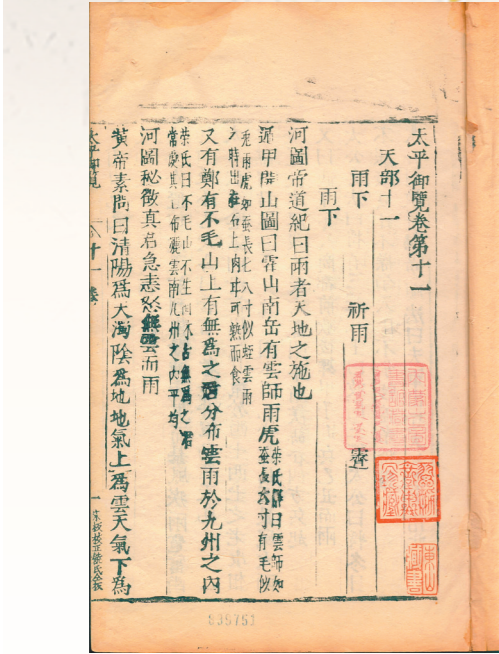 太平御覽卷第十一
天部十一
雨下 祈雨 霽
雨下
河圖帝道紀曰雨者天地之施也
遁甲開山圖曰霍山南岳有雲師雨虎榮氏解曰雲師如蠶長六寸有毛似
兎雨虎如蠶長七八寸似蛭雲雨
時出在石上肉甘可熟而食
又有鄭有不毛山上有無爲之君分布雲雨於九州之內
榮氏曰不毛山不生 木 無爲之君
常 其 布 雲雨九州之內平均
河圖秘徵真君急恚怒無雲而雨
黃帝素問曰清陽爲天濁陰爲地地氣上爲雲天氣下爲
太平御覽
十一卷
一
東山
838751